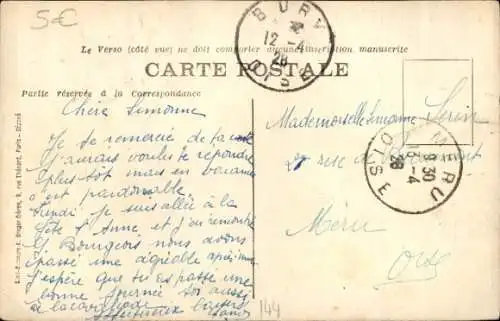 5€
BURY
12-4
28
OISE
Le Verso (côté vue) ne doit comporter aucune inscription manuscrite
CARTE POSTALE
Partie réservée à la Correspondance
Chère Simonne
Je te remercie de ta
J'aurais voulu te répondre
plus tôt mais en vacances
c'est pardonable.
Lundi je suis allée à la
fête d'Anne et j'ai rencontré
Bourgeois nous avons
passé une agréable après-midi
J'espère que tu as passé une
bonne journée toi aussi
Mademoiselle Simonne
rue de
Méru
Oise
MÉRU
9 30
13-4
28
OISE
144